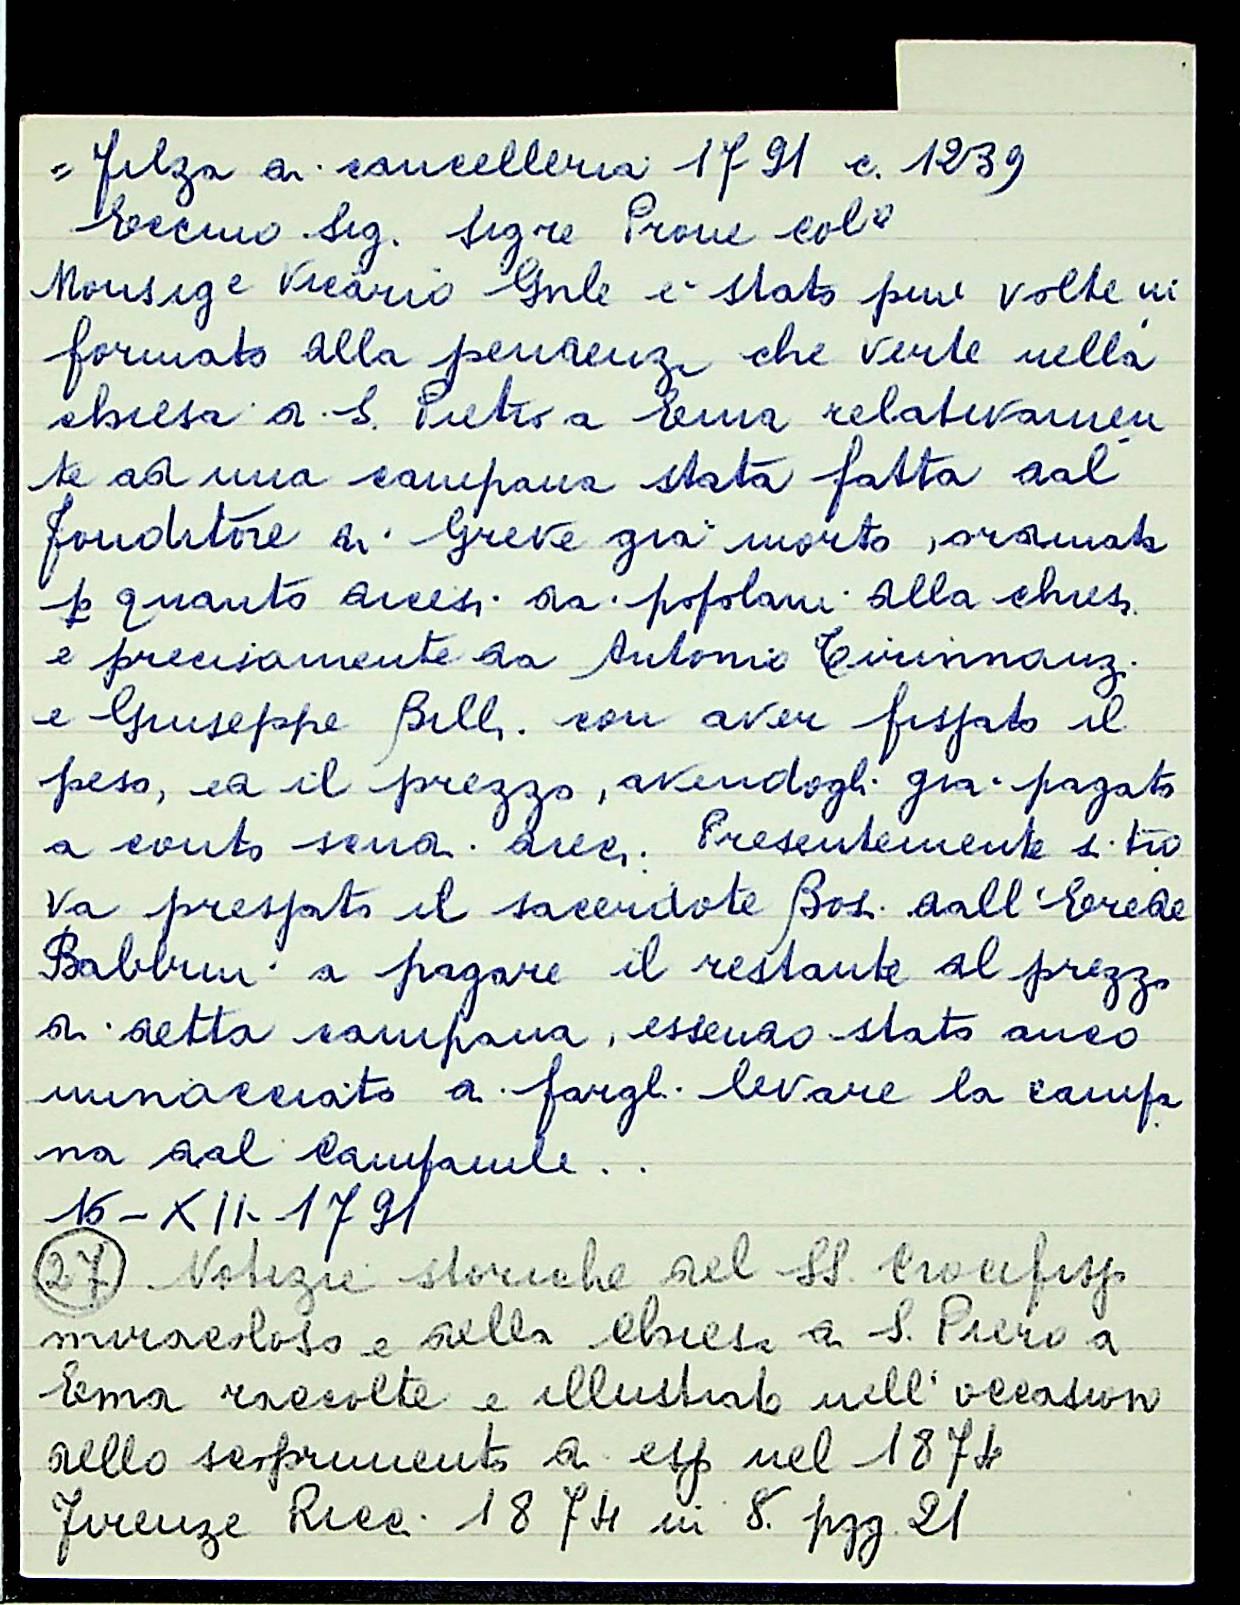 = Filza di cancelleria 1791 c. 1239
Eccmo Sig. Sigre Prone colo
Monsige Vicario Gnle è stato più volte in
formato della pendenza che verte nella
chiesa di S. Pietro a Ema relativamen
te ad una campana stata fatta dal
fonditore di Greve già morto, ordinata
p quanto dicesi da popolani della chiesa
e precisamente da Antonio Cirinnanzi
e Giuseppe Billi con aver fissato il
peso, ed il prezzo, avendogli già pagato
a conto scudi dieci. Presentemente si tro
va pressato il sacerdote Bosi dall'Erede
Babbini a pagare il restante del prezzo
di detta campana, essendo stato anco
minacciato di fargli levare la campa
na dal campanile . .
16-XII-1791
27 Notizie storiche del SS. Crocifisso
miracoloso e della chiesa di S. Piero a
Ema raccolte e illustrate nell'occasione
dello scoprimento di esso nel 1874
Firenze Ricci 1874 in 8. pgg. 21